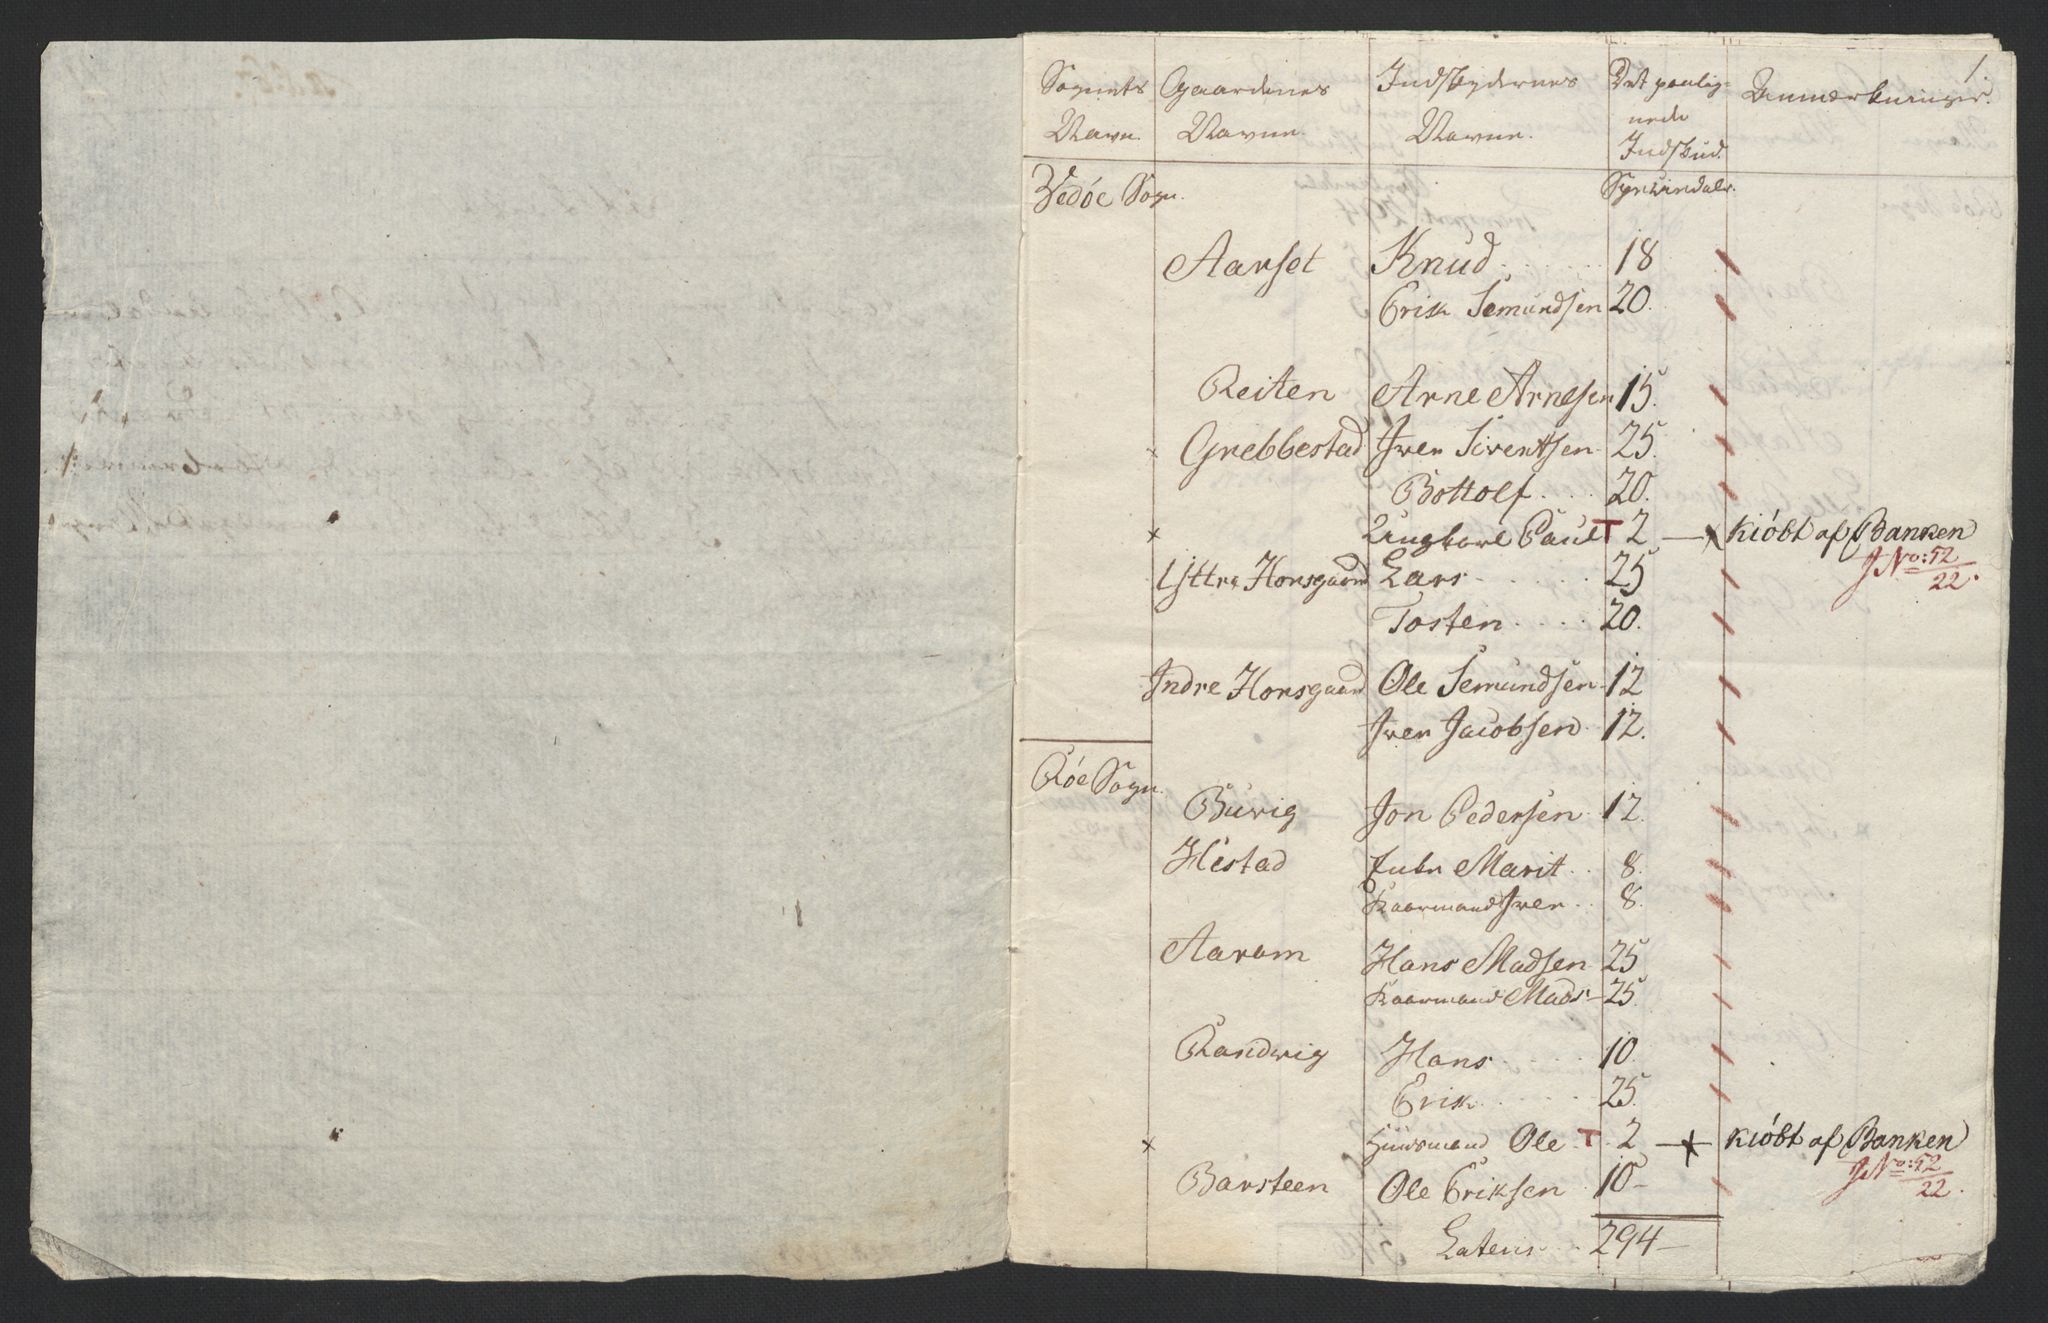 1.
Sognets Gaardenes Indskydernes Det paalig- Anmærkninger.
Navn. Navne. Navne. nede
Indskud.
Vedöe Sogn. Spesiedaler.
Aarset Knud 18
Erik Semundsen 20.
Reiten Arne Arnesen 15.
× Grebbestad Iver Siventsen 25.
Bottolf 20.
× Ungkarl Paul T 2 — × kióbt af Banken
J No: 52/22.
Ÿttre Horsgaard Lars 25
Tosten 20.
Indre Horsgaard Ole Semundsen 12
Iver Jacobsen 12.
Röe Sogn.
Buvig Jon Pedersen 12.
Hestad Enke Marit 8.
Kaarmand Iver 8.
Aaram Hans Madsen 25
Kaarmand Mads 25.
Randvig Hans 10
Erik 25.
× Huusmand Ole T 2 — × kióbt af Banken
J No: 52/22.
Barsteen Ole Eriksen 10 —
Latens 294 —